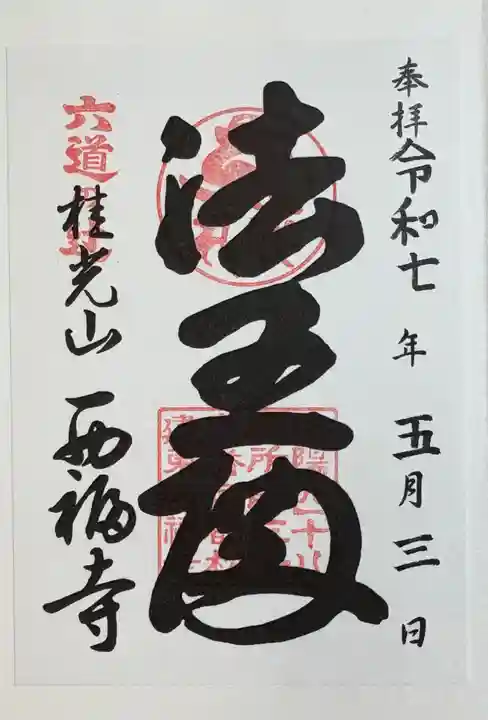 奉拝 令和七年 五月三日
法王殿
六道
桂光山 西福寺